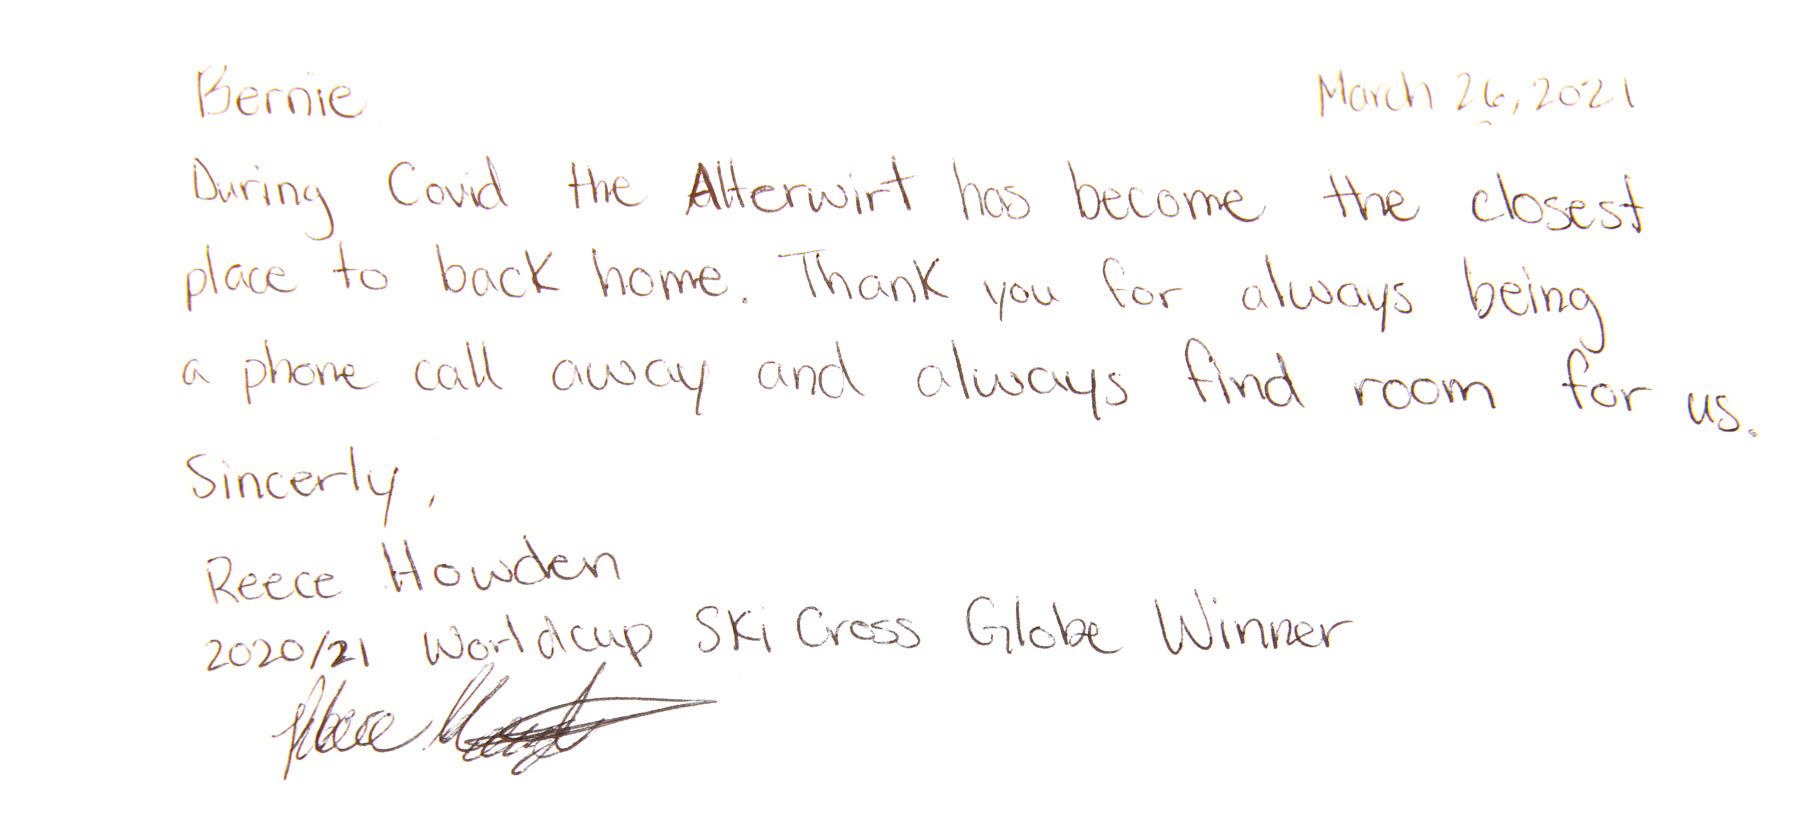 Bernie March 26, 2021
During Covid the Alterwirt has become the closest
place to back home. Thank you for always being
a phone call away and always find room for us.
Sincerly,
Reece Howden
2020/21 Worldcup Ski Cross Globe Winner
Reece